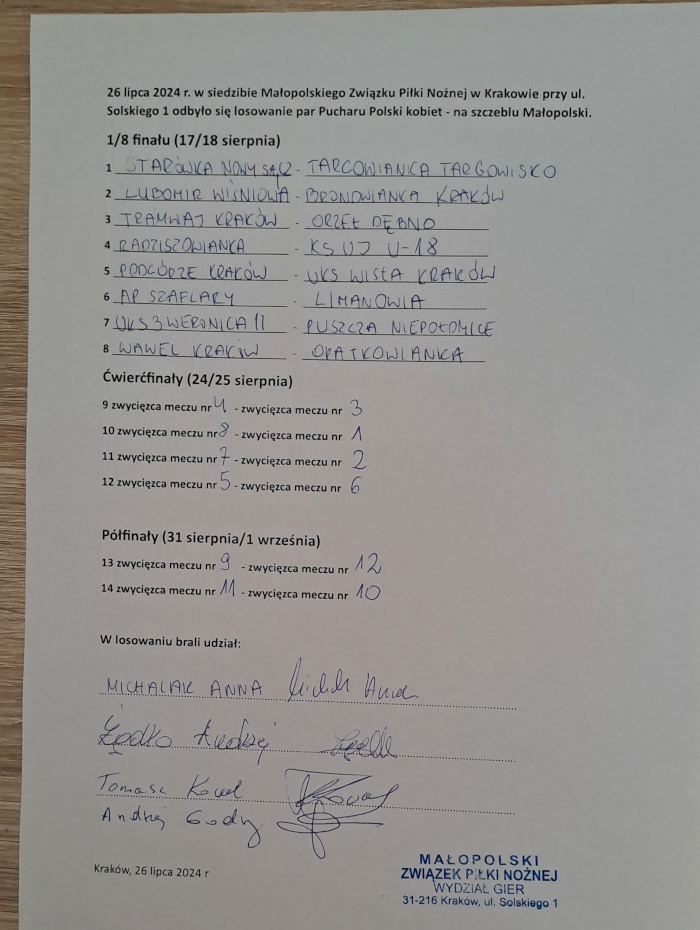 26 lipca 2024 r. w siedzibie Małopolskiego Związku Piłki Nożnej w Krakowie przy ul.
Solskiego 1 odbyło się losowanie par Pucharu Polski kobiet - na szczeblu Małopolski.
1/8 finału (17/18 sierpnia)
1 STARÓWKA NOWY SĄCZ - TARGOWIANKA TARGOWISKO
2 LUBOMIR WIŚNIOWA - BRONOWIANKA KRAKÓW
3 TRAMWAJ KRAKÓW - ORZEŁ DĘBNO
4 RADZISZOWIANKA - KS UJ U-18
5 PODGÓRZE KRAKÓW - UKS WISŁA KRAKÓW
6 AP SZAFLARY - LIMANOVIA
7 UKS 3 WERONICA II - PUSZCZA NIEPOŁOMICE
8 WAWEL KRAKÓW - OPATKOWIANKA
Ćwierćfinały (24/25 sierpnia)
9 zwycięzca meczu nr 4 - zwycięzca meczu nr 3
10 zwycięzca meczu nr 8 - zwycięzca meczu nr 1
11 zwycięzca meczu nr 7 - zwycięzca meczu nr 2
12 zwycięzca meczu nr 5 - zwycięzca meczu nr 6
Półfinały (31 sierpnia/1 września)
13 zwycięzca meczu nr 9 - zwycięzca meczu nr 12
14 zwycięzca meczu nr 11 - zwycięzca meczu nr 10
W losowaniu brali udział:
MICHALAK ANNA
Żądło Andrzej
Tomasz
Andrzej
Kraków, 26 lipca 2024 r
MAŁOPOLSKI
ZWIĄZEK PIŁKI NOŻNEJ
WYDZIAŁ GIER
31-216 Kraków, ul. Solskiego 1